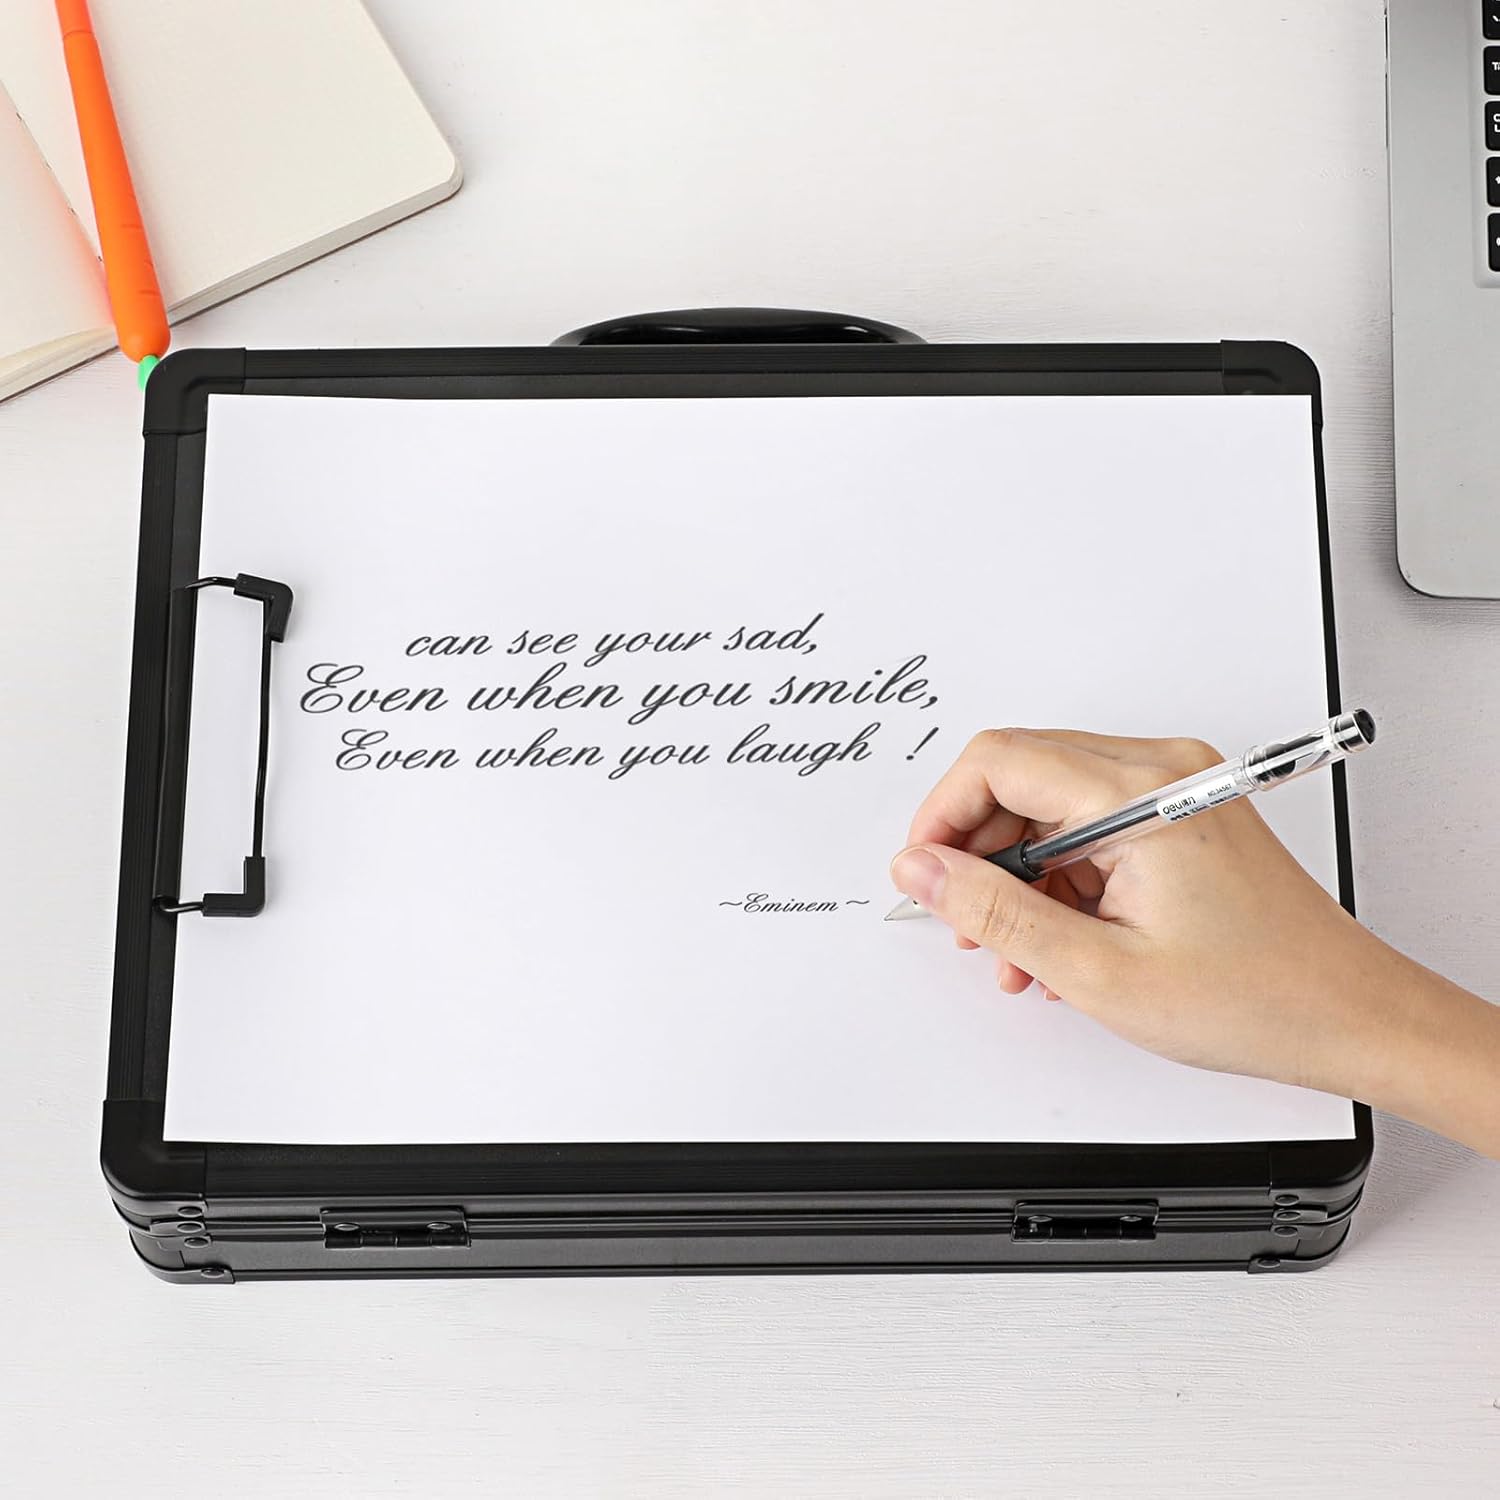 can see your sad,
Even when you smile,
Even when you laugh !
~Eminem ~
deli
NO.34567